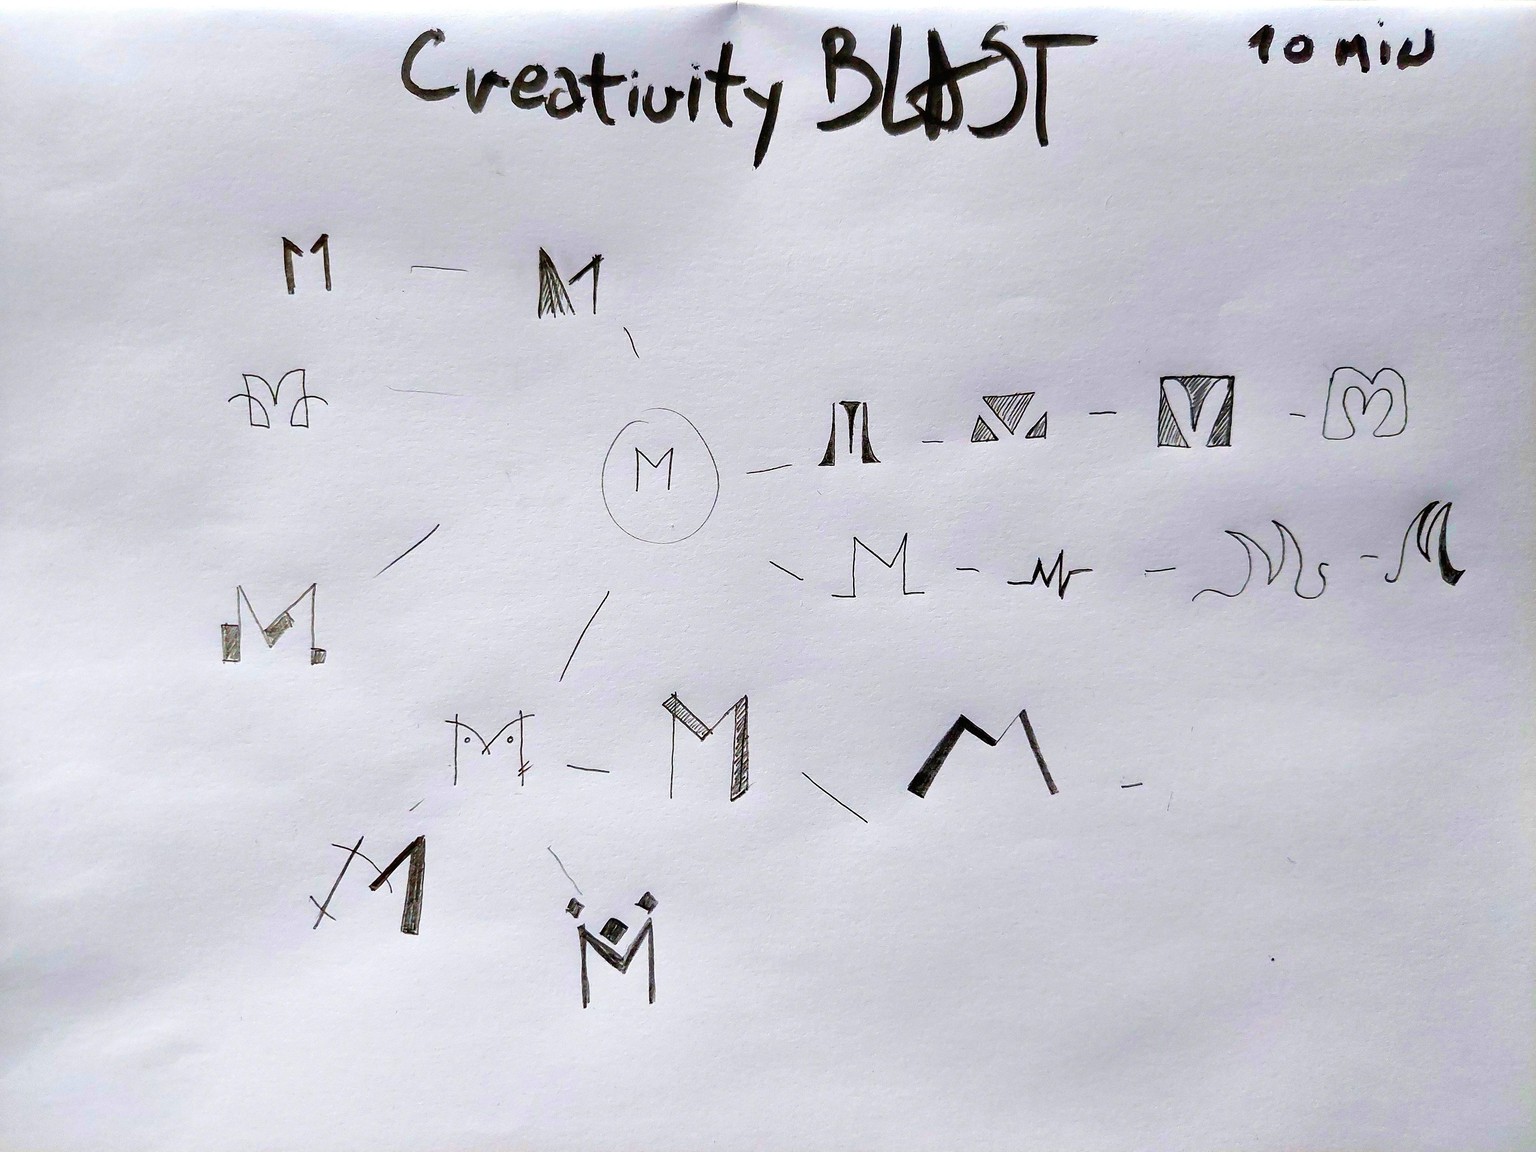 Creativity BLAST 10 min
M - M
M
M - M - M - M - M
M - M - M - M
M
M - M - M
M
M